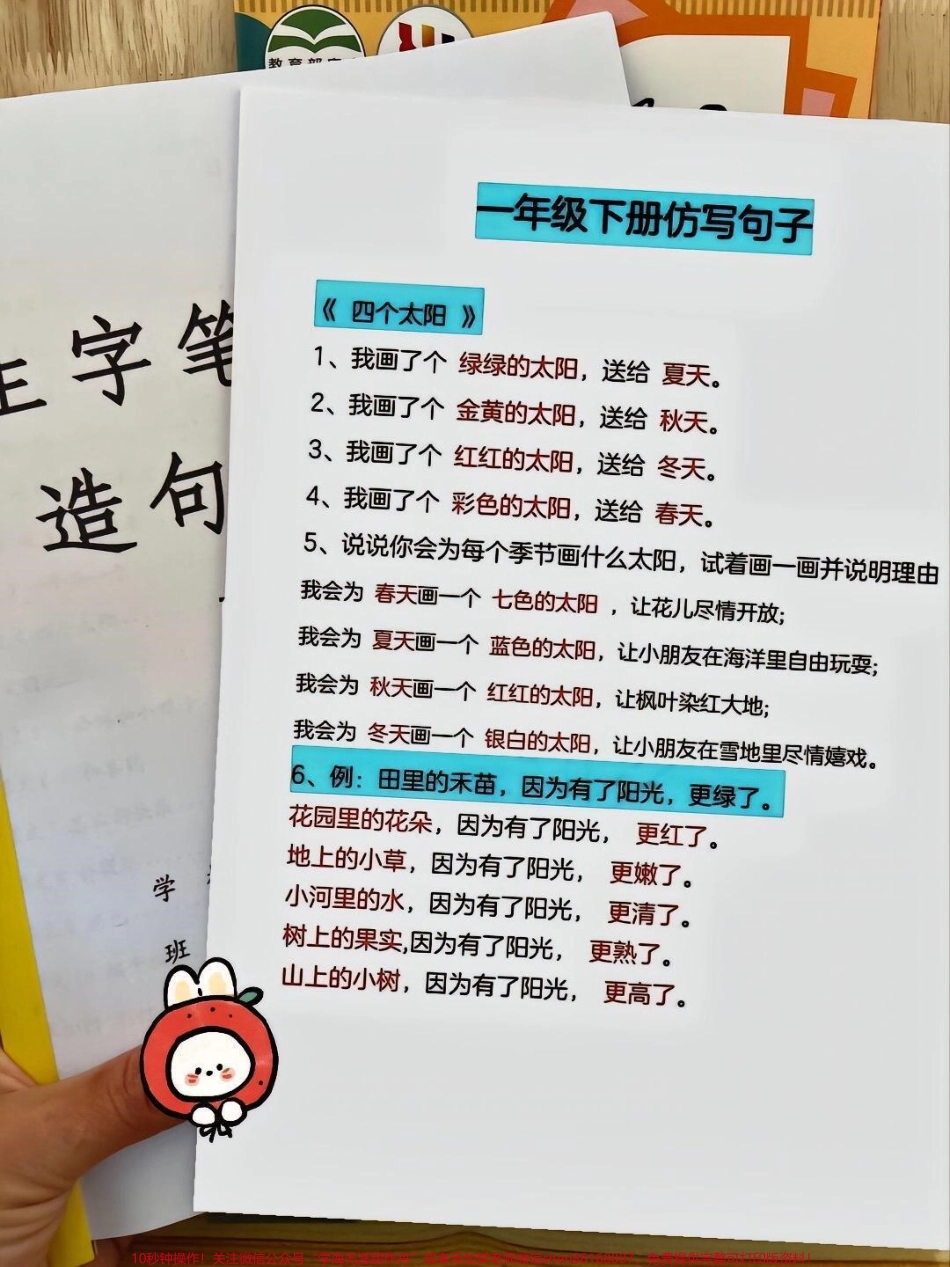 教育部
一年级下册仿写句子
《 四个太阳 》
1、我画了个 绿绿的太阳，送给 夏天。
2、我画了个 金黄的太阳，送给 秋天。
3、我画了个 红红的太阳，送给 冬天。
4、我画了个 彩色的太阳，送给 春天。
5、说说你会为每个季节画什么太阳，试着画一画并说明理由
我会为 春天画一个 七色的太阳 ，让花儿尽情开放;
我会为 夏天画一个 蓝色的太阳，让小朋友在海洋里自由玩耍;
我会为 秋天画一个 红红的太阳，让枫叶染红大地;
我会为 冬天画一个 银白的太阳，让小朋友在雪地里尽情嬉戏。
6、例：田里的禾苗，因为有了阳光，更绿了。
花园里的花朵，因为有了阳光， 更红了。
地上的小草，因为有了阳光， 更嫩了。
小河里的水，因为有了阳光， 更清了。
树上的果实,因为有了阳光， 更熟了。
山上的小树，因为有了阳光， 更高了。
生字笔
造句
学
班
10秒钟操作！关注微信公众号